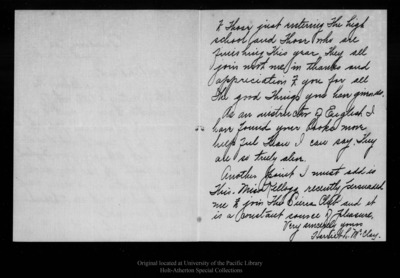 to those just entering the high
school and those who are
finishing this year. They all
join with me in thanks and
appreciation to you for all
the good things you have given us.
As an instructor of English I
have found your books more
helpful than I can say. They
are so truly alive.
Another point I must add is
this. Miss Kellogg recently persuaded
me to join the Sierra Club and it
is a constant source of pleasure.
Very sincerely yours
Harriet A. McClay.
Original located at University of the Pacific Library
Holt-Atherton Special Collections